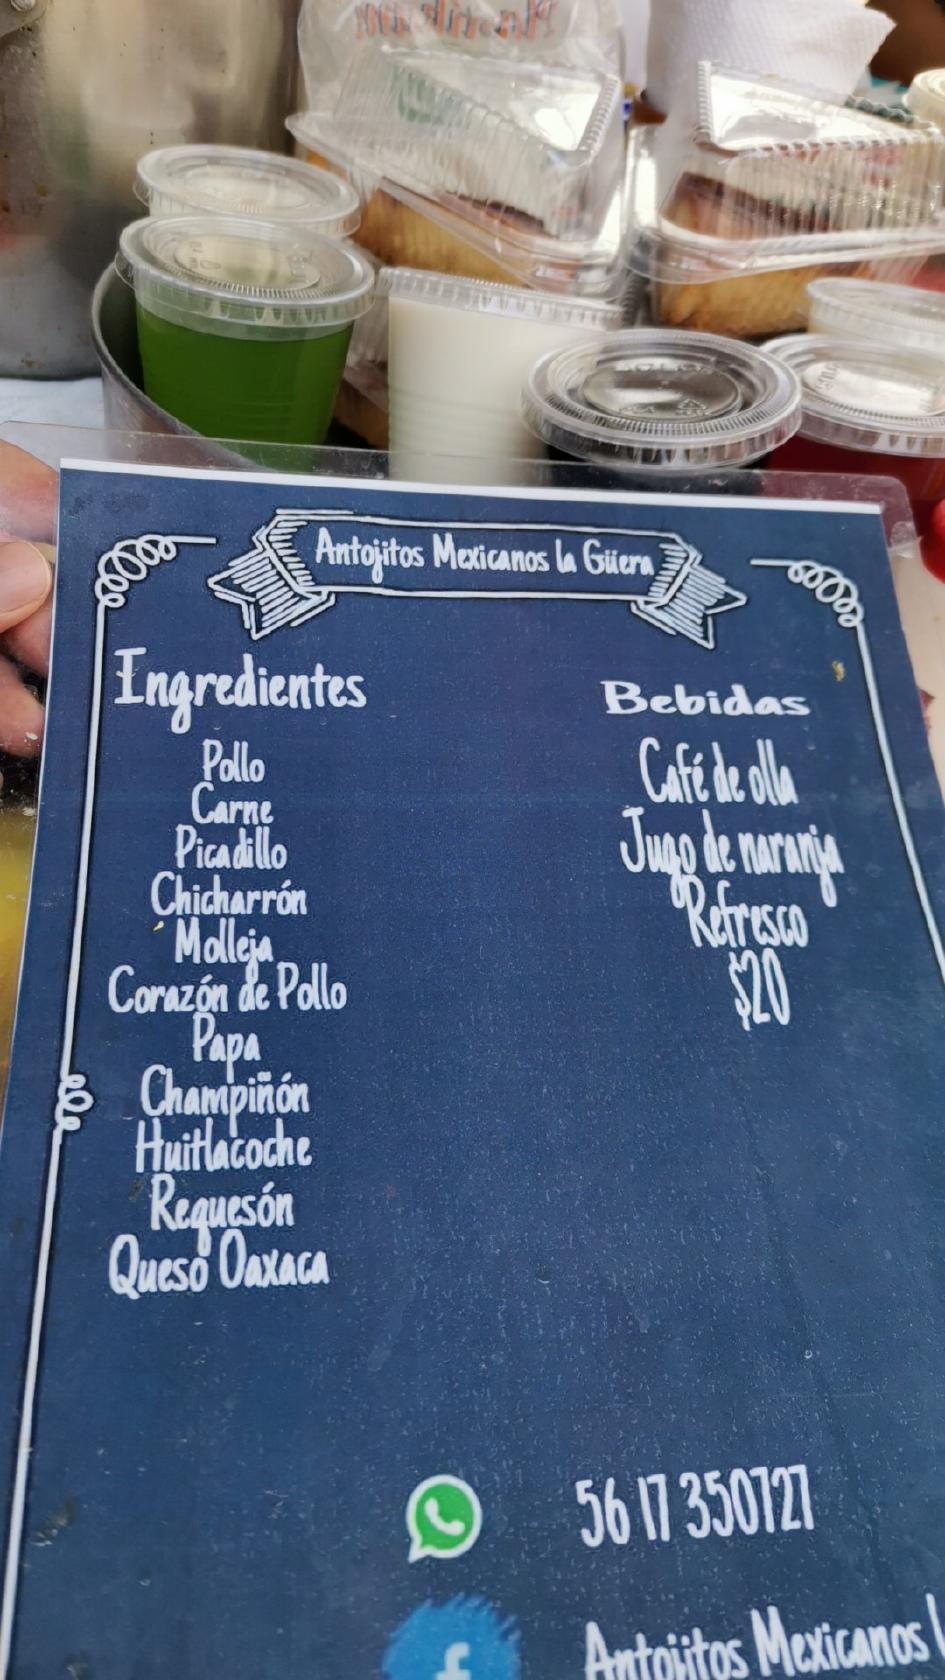 Antojitos Mexicanos la Güera
Ingredientes
Pollo
Carne
Picadillo
Chicharrón
Molleja
Corazón de Pollo
Papa
Champiñón
Huitlacoche
Requesón
Queso Oaxaca
Bebidas
Café de olla
Jugo de naranja
Refresco
$20
56 17 350727
Antojitos Mexicanos